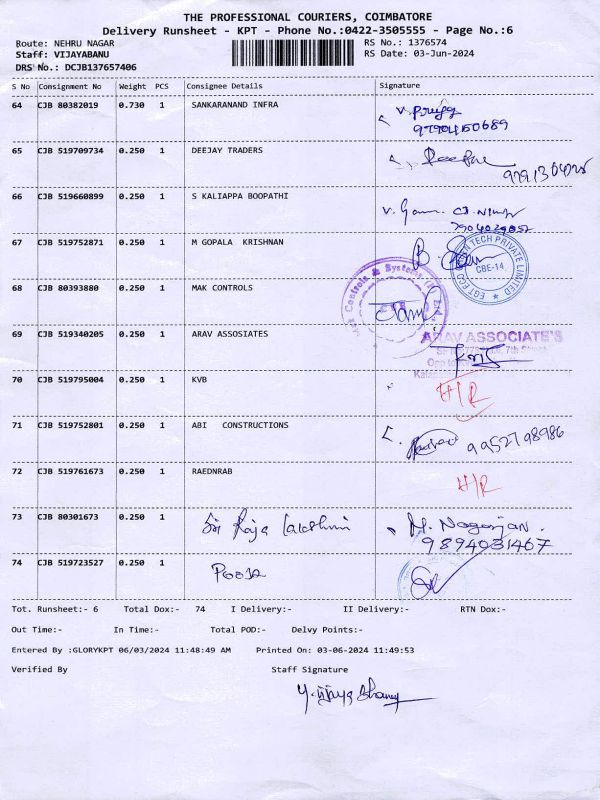 THE PROFESSIONAL COURIERS, COIMBATORE
Delivery Runsheet - KPT - Phone No.:0422-3505555 - Page No.:6
Route: NEHRU NAGAR RS No.: 1376574
Staff: VIJAYABANU RS Date: 03-Jun-2024
DRS No.: DCJB137657406
S No Consignment No Weight PCS Consignee Details Signature
64 CJB 80382019 0.730 1 SANKARANAND INFRA
65 CJB 519709734 0.250 1 DEEJAY TRADERS
66 CJB 519660899 0.250 1 S KALIAPPA BOOPATHI
67 CJB 519752871 0.250 1 M GOPALA KRISHNAN
CBE-14
68 CJB 80393880 0.250 1 MAK CONTROLS
69 CJB 519340205 0.250 1 ARAV ASSOSIATES ARAV ASSOCIATE'S
70 CJB 519795004 0.250 1 KVB H/R
71 CJB 519752801 0.250 1 ABI CONSTRUCTIONS 9952798986
72 CJB 519761673 0.250 1 RAEDNRAB H/R
73 CJB 80301673 0.250 1 Sri Raja Lakshmi M. Nagarajan.
9894031467
74 CJB 519723527 0.250 1 Pooja
Tot. Runsheet:- 6 Total Dox:- 74 I Delivery:- II Delivery:- RTN Dox:-
Out Time:- In Time:- Total POD:- Delvy Points:-
Entered By :GLORYKPT 06/03/2024 11:48:49 AM Printed On: 03-06-2024 11:49:53
Verified By Staff Signature